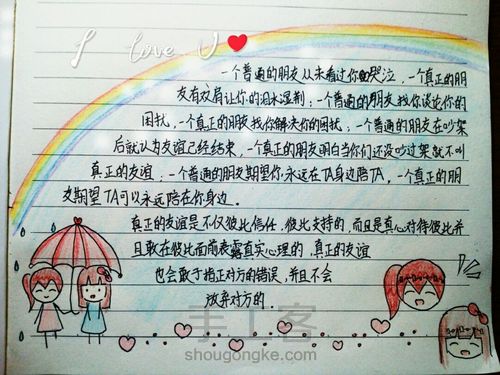 I love U
一个普通的朋友从未看过你哭泣，一个真正的朋
友有双肩让你的泪水湿到；一个普通的朋友找你谈论你的
困扰，一个真正的朋友找你解决你的困扰；一个普通的朋友在吵架
后就认为友谊已经结束，一个真正的朋友明白当你们还没吵过架就不叫
真正的友谊；一个普通的朋友期望你永远在TA身边陪TA，一个真正的朋
友期望TA可以永远陪在你身边．
真正的友谊是不仅彼此信任，彼此支持的，而且是真心对待彼此并
且敢在彼此面前表露真实心理的，真正的友谊
也会敢于指正对方的错误，并且不会
放弃对方的．
手工客
shougongke.com